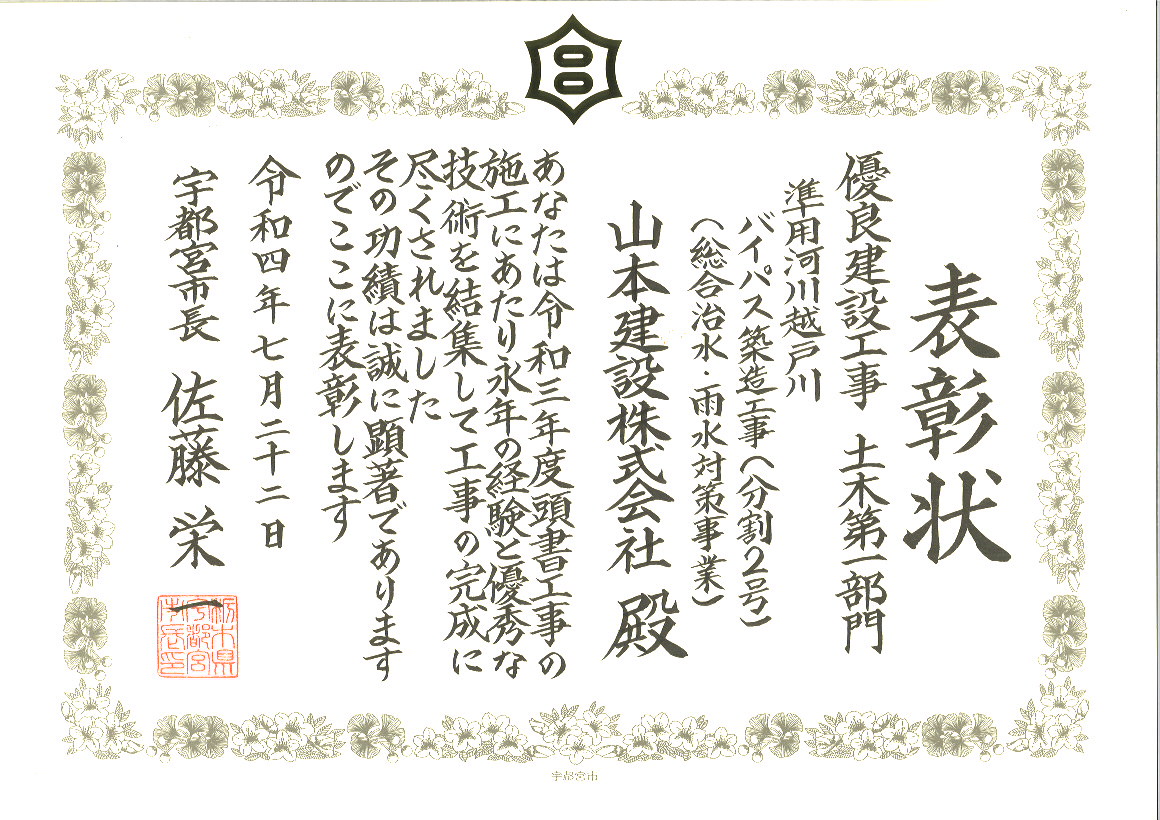 表彰状
優良建設工事 土木第一部門
準用河川越戸川
バイパス築造工事(分割2号)
(総合治水・雨水対策事業)
山本建設株式会社 殿
あなたは令和三年度頭書工事の
施工にあたり永年の経験と優秀な
技術を結集して工事の完成に
尽くされました
その功績は誠に顕著であります
のでここに表彰します
令和四年七月二十二日
宇都宮市長 佐藤 栄一
栃木県宇都宮市長之印
宇都宮市